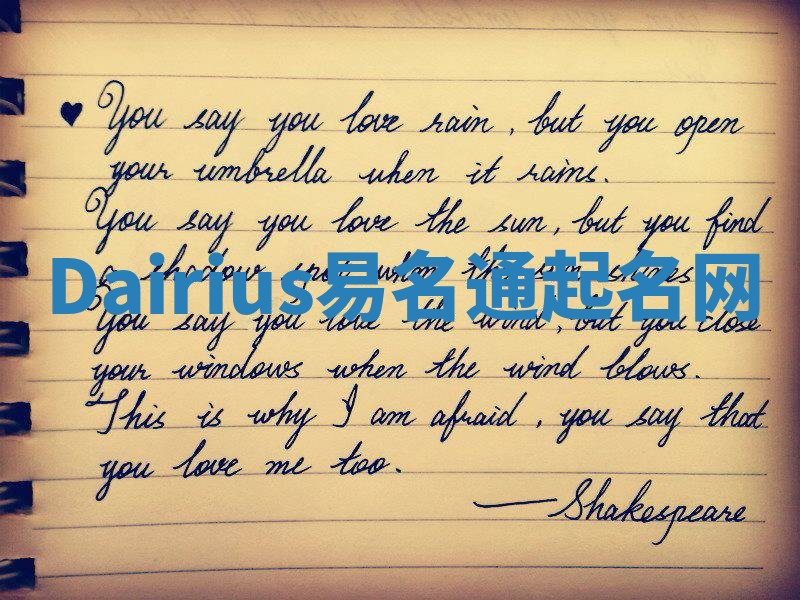 ♥ You say you love rain, but you open
your umbrella when it rains.
You say you love the sun, but you find
a shadow spot when the sun shines
Dairius易名通起名网
You say you love the wind, but you close
your windows when the wind blows.
This is why I am afraid, you say that
you love me too.
—Shakespeare